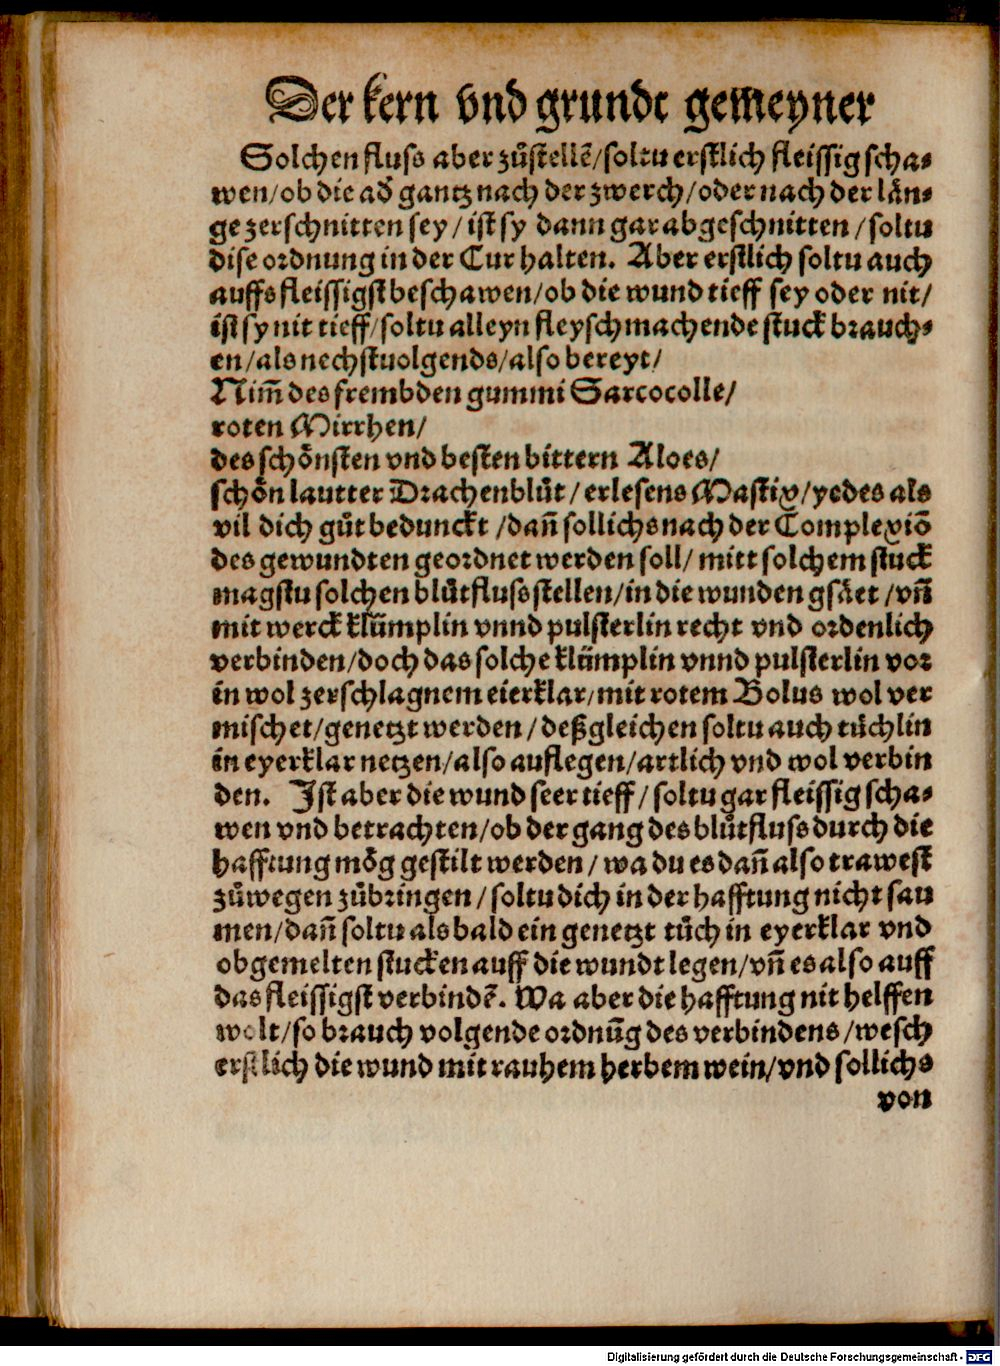 Der kern vnd grundt gemeyner
Solchen fluss aber zůstellē/soltu erstlich fleissig scha⸗
wen/ob die ad̄ gantz nach der zwerch/oder nach der län⸗
ge zerschnitten sey/ist sy dann gar abgeschnitten/soltu
dise ordnung in der Cur halten. Aber erstlich soltu auch
auffs fleissigst beschawen/ob die wund tieff sey oder nit/
ist sy nit tieff/soltu alleyn fleyschmachende stuck brauch⸗
en/als nechstuolgends/also bereyt/
Nim̄ des frembden gummi Sarcocolle/
roten Mirrhen/
des schönsten vnd besten bittern Aloes/
schön lautter Drachenblůt/erlesens Mastix/yedes als
vil dich gůt bedunckt/dan̄ sollichs nach der Complexiō
des gewundten geordnet werden soll/mitt solchem stuck
magstu solchen blůtfluss stellen/in die wunden gsäet/vn̄
mit werck klümplin vnnd pulsterlin recht vnd ordenlich
verbinden/doch das solche klümplin vnnd pulsterlin vor
in wol zerschlagnem eierklar/mit rotem Bolus wol ver
mischet/genetzt werden/deßgleichen soltu auch tüchlin
in eyerklar netzen/also auflegen/artlich vnd wol verbin
den. Ist aber die wund seer tieff/soltu gar fleissig scha⸗
wen vnd betrachten/ob der gang des blůtfluss durch die
hafftung mög gestilt werden/wa du es dan̄ also trawest
zůwegen zůbringen/soltu dich in der hafftung nicht sau
men/dan̄ soltu als bald ein genetzt tůch in eyerklar vnd
obgemelten stucken auff die wundt legen/vn̄ es also auff
das fleissigst verbindē. Wa aber die hafftung nit helffen
wolt/so brauch volgende ordnūg des verbindens/wesch
erstlich die wund mit rauhem herbem wein/vnd sollichs
von
Digitalisierung gefördert durch die Deutsche Forschungsgemeinschaft - DFG